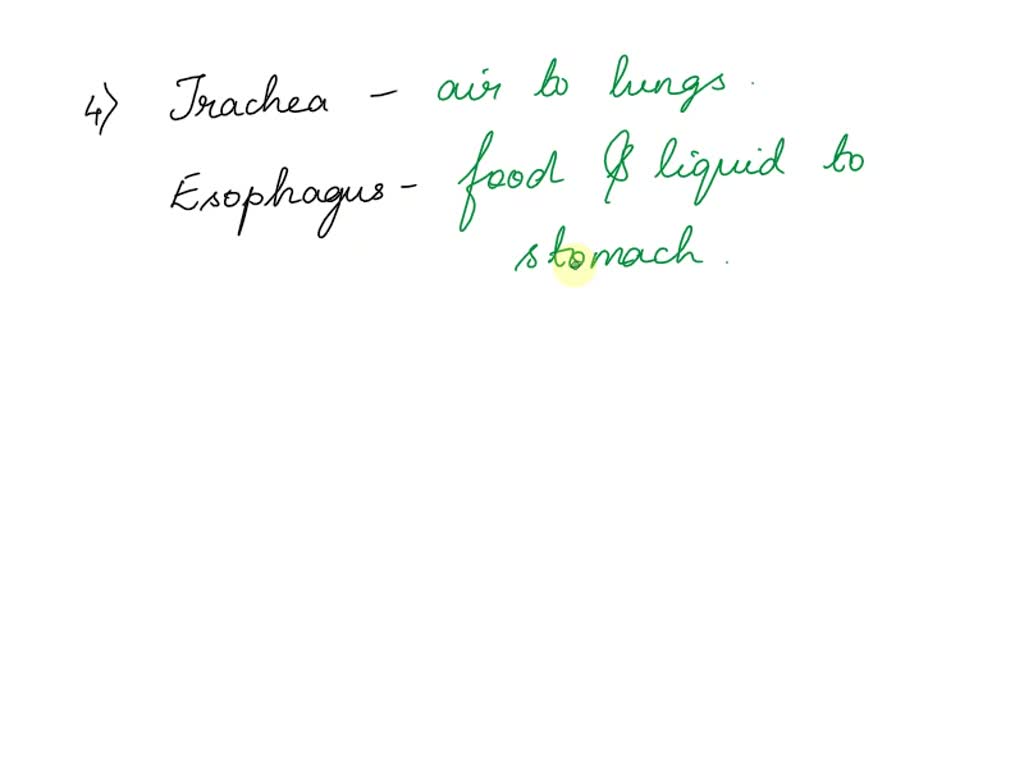 4) Trachea - air to lungs.
Esophagus - food & liquid to
stomach.